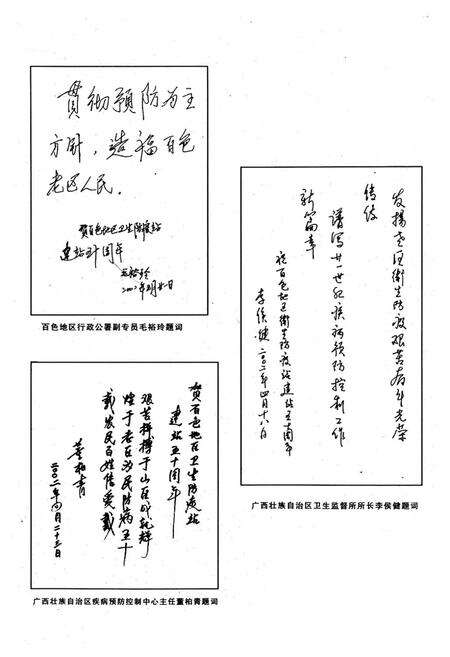 贯彻预防为主
方针，造福百色
老区人民。
贺百色地区卫生防疫站
建站五十周年
毛裕玲
百色地区行政公署副专员毛裕玲题词
发扬老区卫生防疫艰苦奋斗光荣
传统
谱写廿一世纪疾病预防控制工作
新篇章
祝百色地区卫生防疫站建站五十周年
李侯健二〇〇二年四月十八日
广西壮族自治区卫生监督所所长李侯健题词
贺百色地区卫生防疫站
建站五十周年
艰苦拼搏于山区成就辉
煌于老区为民防病五十
载农民百姓皆爱戴
董柏青
二〇〇二年四月二十三日
广西壮族自治区疾病预防控制中心主任董柏青题词